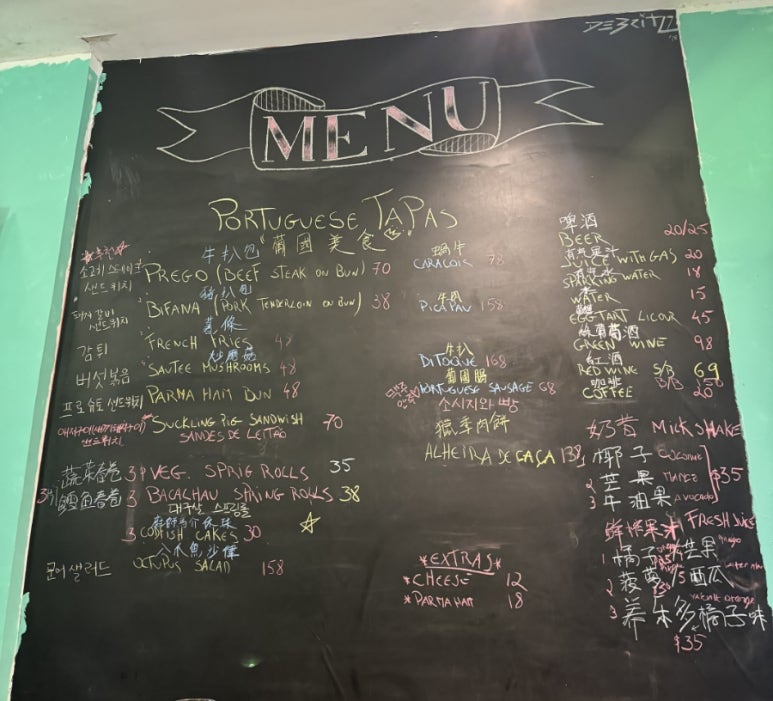 DEBRITZZ
MENU
PORTUGUESE TAPAS
葡國美食
*추천*
牛扒包
소고기 스테이크
샌드위치
PREGO (BEEF STEAK ON BUN) 70
豬扒包
돼지갈비
샌드위치
BIFANA (PORK TENDERLOIN ON BUN) 38
薯條
감튀
FRENCH FRIES
炒蘑菇
버섯볶음
SAUTEE MUSHROOMS 48
프로슈토 샌드위치
PARMA HAM BUN 48
샌드위치
SUCKLING PIG SANDWISH 70
SANDES DE LEITAO
蔬菜春卷 3 VEG. SPRIG ROLLS 35
鱈魚春卷 3 BACALHAU SPRING ROLLS 38
대구살 스프링롤
3 CODFISH CAKES 30
문어샐러드
OCTOPUS SALAD 158
蝸牛
CARACOIS 78
牛肉
PICAPAU 158
牛扒
DITOQUE 168
葡國腸
PORTUGUESE SAUSAGE 68
소시지와 빵
獵季肉餅
ALHEIRA DE CAÇA 138
*EXTRAS*
*CHEESE 12
*PARMA HAM 18
啤酒
BEER 20/25
JUICE WITH GAS 20
SPARKING WATER 18
WATER 15
EGG TART LICOUR 45
綠葡萄酒
GREEN WINE 98
紅酒
RED WINE S/B 69
B/B 150
咖啡
COFFEE 20
奶昔 MILKSHAKE
1 椰子 COCONUT
2 芒果 MANGO
3 牛油果 AVOCADO
$35
鮮榨果汁 FRESH JUICE
1 橘子
2 菠蘿/西瓜
3 橘子味
$35